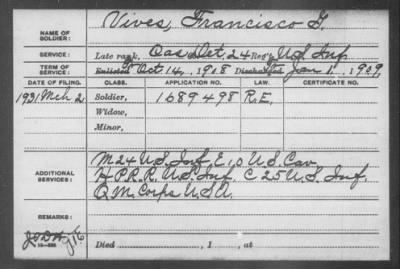 Vives, Francisco G.
NAME OF SOLDIER:
SERVICE: Late rank, Cas Det, 24 Reg't U.S. Inf
TERM OF SERVICE: Enlisted Oct. 14, 1908 Discharged Jan 1, 1909,
DATE OF FILING. CLASS. APPLICATION NO. LAW. CERTIFICATE NO.
1931 Mch 2 Soldier, 1689498 R.E.
Widow,
Minor,
ADDITIONAL SERVICES: M 24 U.S. Inf, E, 10 U.S. Cav
H P.R.R. U.S. Inf. C 25 U.S. Inf.
Q.M. Corps U.S.A.
REMARKS:
Died , 1 , at